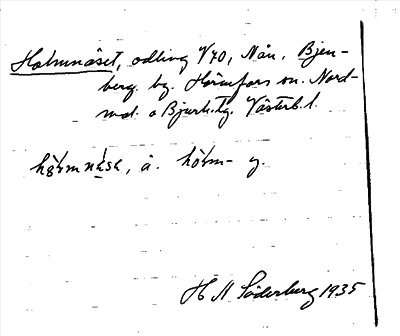 Holmnäset, odling 1/70, Nån. Bjen-
berg by. Hörnefors sn. Nord-
md. o Bjurh. tg. Västerb. l.
hólmnèsɛ, å. hólm- y.
H N Söderberg 1935